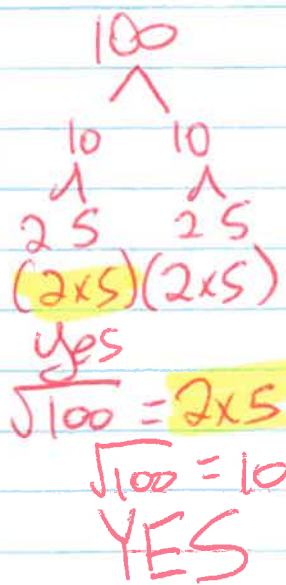 100
10 10
2 5 2 5
(2x5)(2x5)
yes
√100 = 2x5
√100 = 10
YES